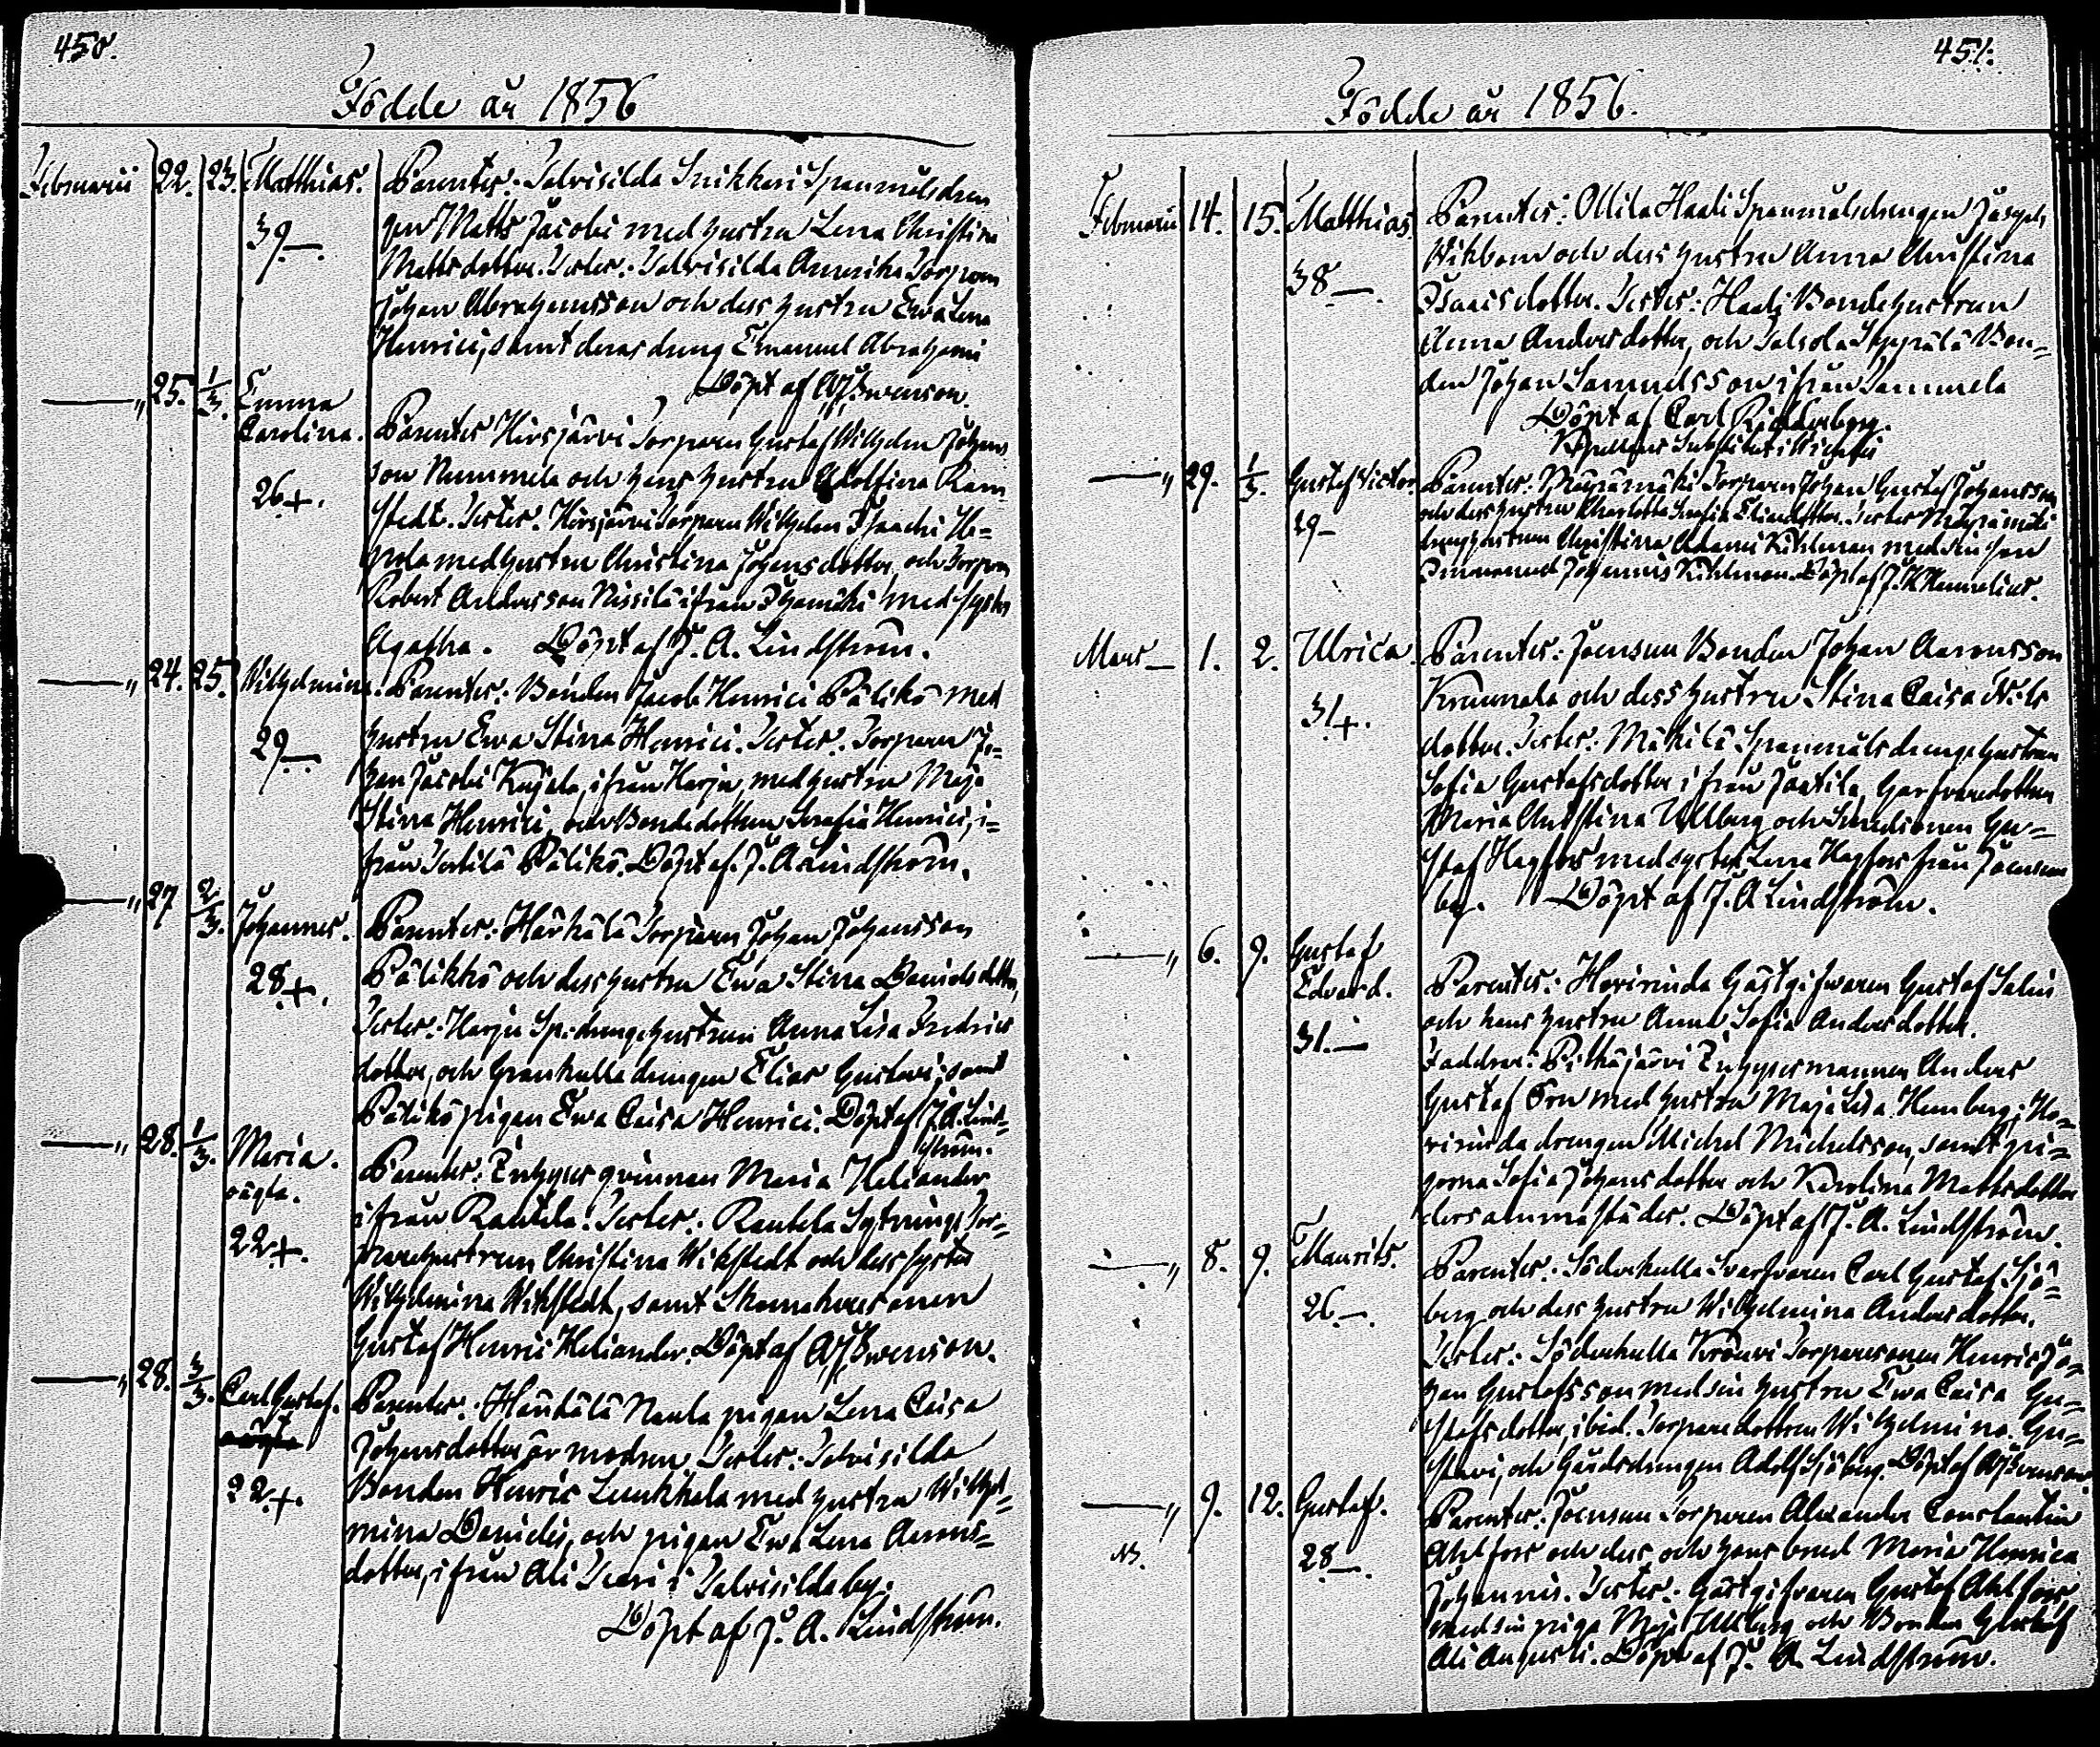 450.
Födde år 1856
Februarii 22. 23. Matthias. Parentes: Talvisilda Snikkari Spanmålsdren
39 — gen Matts Jacobi med hustru Lena Christina
Mattsdotter. Testes: Talvisilda Anerika Torparn
Johan Abrahamsson och dess hustru Ewa Lena
Henrici, samt deras dräng Emanuel Abrahami
Döpt af Swenson.
—„ 25. 1/3. Emma
Carolina. Parentes Hirsjärvi Torparen Gustaf Wilhelm Johans
26+. son Nummela och hans hustru Adolfina Ram
stedt. Testes. Hirsjärvi Torparen Wilhelm Isaachi He=
med hustru Christina Johansdotter, och Torparn
Robert Andersson Nissilä ifrån med syster
Agatha. Döpt af J. A. Lindström.
—„ 24. 25. Wilhelmina. Parentes: Bonden Jacob Henrici Pälikö med
29 — hustru Ewa Stina Henrici. Testes. Torparen Jo=
han Jacobi Kujala, ifrån Harju, med hustru Maja
Stina Henrici, och Bondedottern Serafia Henrici, i=
från Pälikö. Döpt af. J. A. Lindström.
—„ 27 2/3. Johannes. Parentes: Härkälä Torparen Johan Johansson
28+. Pälikkö och dess hustru Ewa Stina Danielsdotter,
Testes: Harju Sp. drängehustrun Anna Lisa Fredrics
dotter, och Grankulla drängen Elias Gustavi, samt
Pälikö pigan Ewa Caisa Henrici. Döpt af J. A. Lind=
ström.
—„ 28. 1/3. Maria. Parentes: Inhyses qvinnan Maria Heliander
oägta. ifrån Rautela. Testes. Rautela Sytnings Tor=
22+. parehustrun Christina Wikstedt och dess syster
Wilhelmina Wikstedt, samt Skomakaresonen
Gustaf Henric Heliander. Döpt af Swenson.
—„ 28. 3/3. Carl Gustaf. Parentes: Härkälä Naula pigan Lena Caisa
Johansdotter är modren. Testes: Talvisilda
22+. Bonden Henric Lunkkala med hustru Wilhel=
mina Danielis, och pigan Ewa Lena Aarons=
dotter, ifrån Ali i Talvisilda by.
Döpt af J. A. Lindström.
451.
Födde år 1856.
Februarii 14. 15. Matthias. Parentes: Ollila Haali Spanmålsdrengen Joseph
Wikbom och dess hustru Anna Christina
38 —. Isaacsdotter. Testes: Haali Bondehustrun
Anna Andersdotter, och Salsola Seppälä Bon=
den Johan Samuelsson ifrån Sammela
Döpt af Carl Ridderborg.
—„ 29. 1/3. Gustaf Victor. Parentes: Torparen Johan Gustaf Johansson
29 – och dess hustru Charlotta Serafia Eliaedotter. Testes
drenghustrun Christina Adami Kihlman med sin son
Emmanuel Johannis Kihlman. Döpt af
Mars — 1. 2. Ulrica. Parentes: Joensuu Bonden Johan Aaronsson
31+. Krumala och dess hustru Stina Caisa Nils
dotter. Testes: Mäkilä Spanmåls drengehustrun
Sofia Gustafsdotter ifrån Jootila, Garfvaredottren
Maria Christina Ullberg och Gu=
staf Hagfors med syster Lena Hagfors från Joensuu
by. Döpt af J. A. Lindström.
—„ 6. 9. Gustaf
Edvard. Parentes: Hovirinda Gästgifwaren Gustaf Salin
31. — och hans hustru Anna Sofia Andersdotter.
Faddrar: Pitkäjärvi Inhysesmannen Anders
Gustaf Orn med hustru Maja Lisa Hemberg; Ho=
virinda drengen Michel Michelsson, samt pi=
gorna Sofia Johansdotter och Karolina Mattsdotter
dersammastädes. Döpt af J. A. Lindström.
—„ 8. 9. Maurits. Parentes: Söderkulla Svarfvaren Carl Gustaf Sjö=
26 —. berg och dess hustru Wilhelmina Andersdotter.
Testes: Söderkulla Krouvi Torparesonen Henric Jo=
han Gustafsson med sin hustru Ewa Caisa Gu=
stafsdotter, ibid. Torparedottren Wilhelmina Gu=
stavi, och Gårdsdrengen Adolf Sjöberg. Döpt af Swenson.
—„ 9. 12. Gustaf. Parentes: Joensuu Torparen Alexander Constantin
28 —. Ahlfors och dess och hans brud Maria Henrica
Johannis. Testes: Gästgifvaren Gustaf Ahlfors,
med sin piga Maja Ullberg och Bonden Gustaf
Ali Augusti. Döpt af J. A. Lindström.